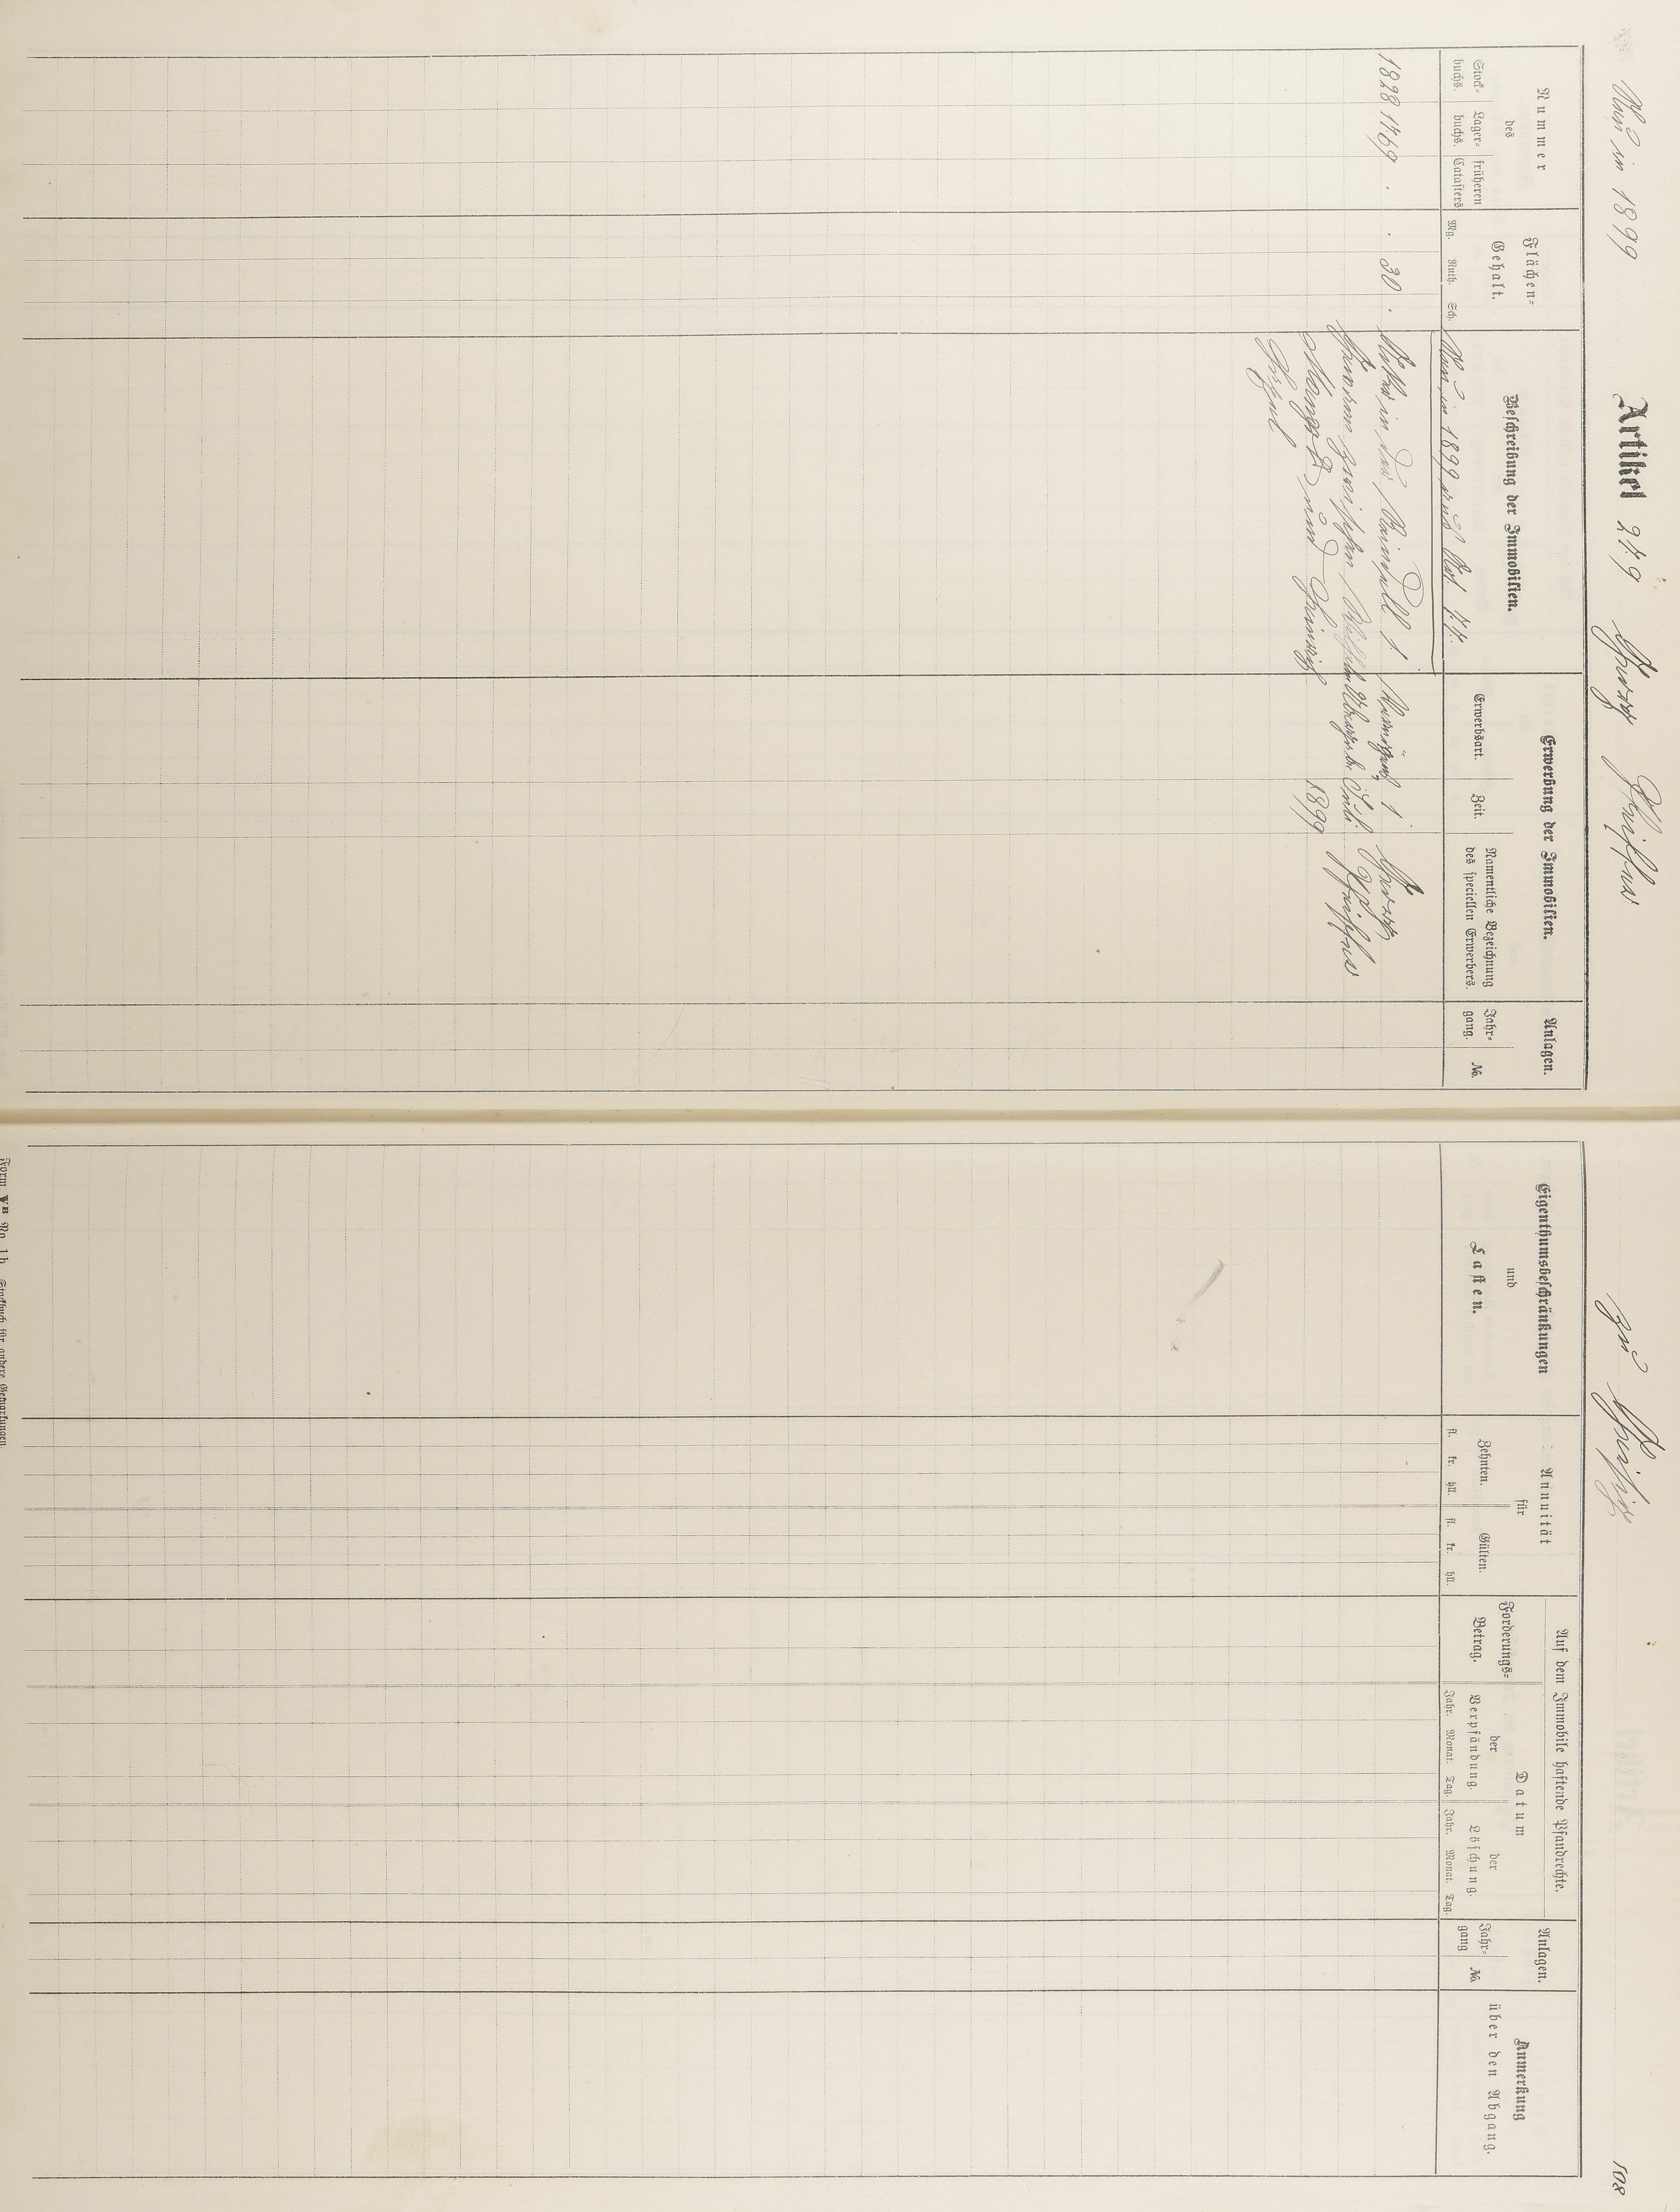 Neu in 1899
Artikel 249 Georg Pfeiffer
zu
108
Nummer
des
Stock-
buchs.
Lager-
buchs.
früheren
Catasters
Flächen-
Gehalt.
Mg. Ruth. Sch.
Beschreibung der Immobilien.
Erwerbung der Immobilien.
Erwerbsart.
Zeit.
Namentliche Bezeichnung
des speciellen Erwerbers.
Anlagen.
Jahr-
gang.
No.
Neu in 1899 aus Art. 44.
1828 1469 . . 30 . Acker in der 1. Georg
zwischen Wilhelm Pfeiffer
und Heinrich 1899
Eigenthumsbeschränkungen
und
Lasten.
Annuität
für
Zehnten.
fl. kr. hll.
Gülten.
fl. kr. hll.
Auf dem Immobile haftende Pfandrechte.
Forderungs-
Betrag.
Datum
der
Verpfändung.
Jahr. Monat. Tag.
der
Löschung.
Jahr. Monat. Tag.
Anlagen.
Jahr-
gang
No.
Anmerkung
über den Abgang.
Form. VB No. 1b. Stockbuch für andere Gemarkungen.